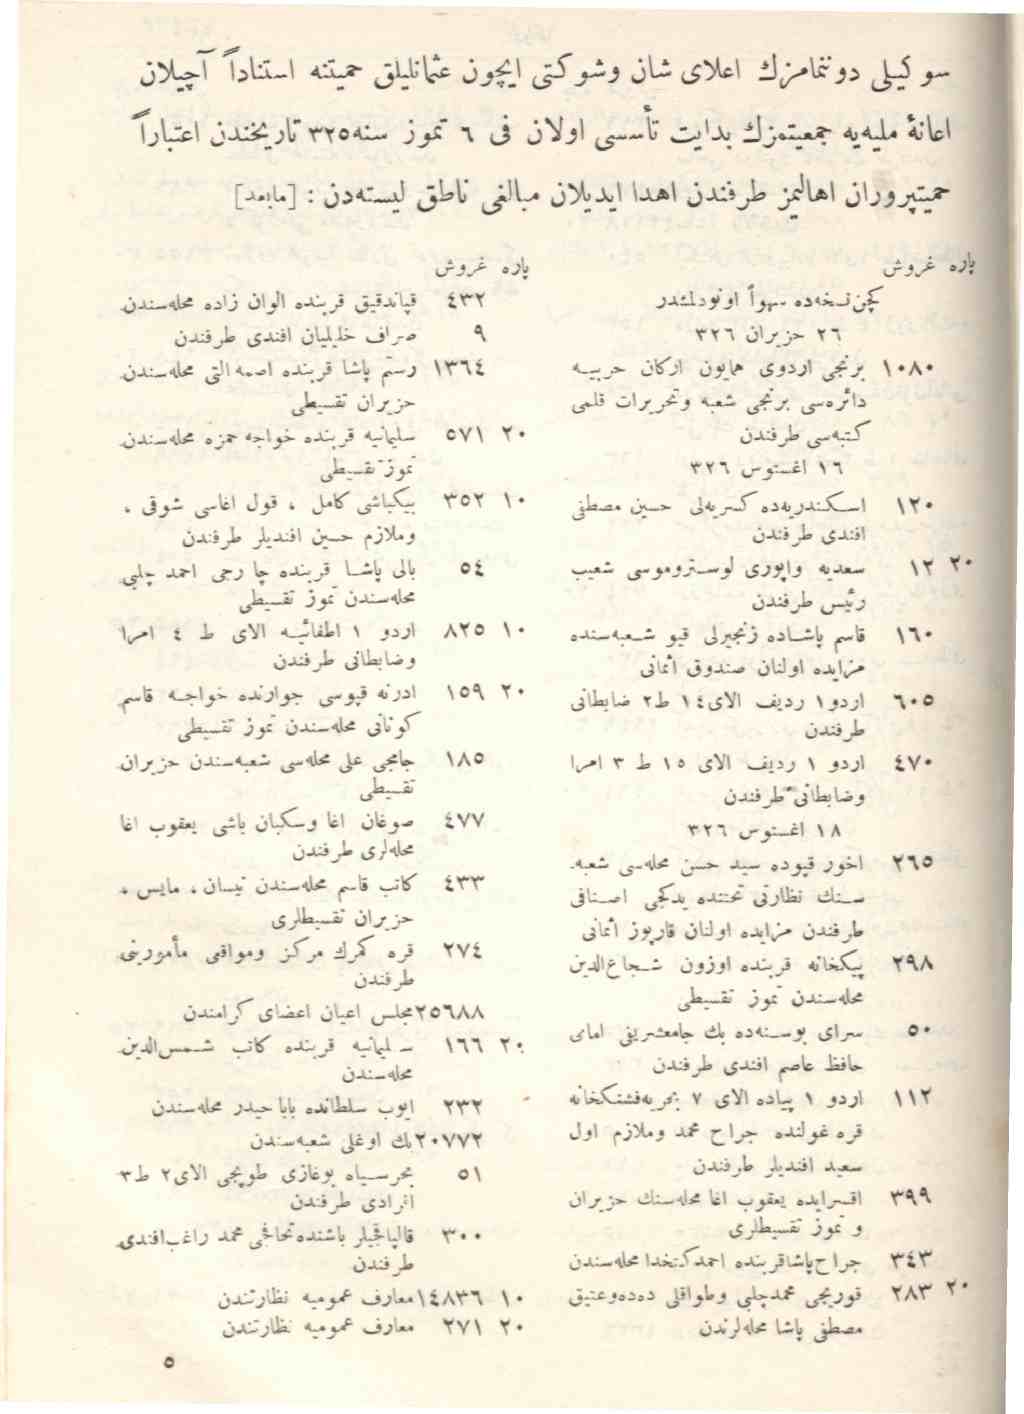 سوكيلى دوننمامزك اعلاى شان وشوكتى ايچون عثمانليلق حميتنه استناداً آچيلان
اعانهٔ مليه‌يه جمعيتمزك بدايت تأسسى اولان فى ٦ تموز سنه ٣٢٥ تاريخندن اعتباراً
حميتپروران اهاليمز طرفندن اهدا ايديلان مبالغى ناطق ليسته‌در : [مابعد]
پاره غروش
كچن نسخه‌ده سهواً اونودلمشدر
٢٦ حزيران ٣٢٦
١٠٨٠ برنجى اردوى همايون اركان حربيه
دائره‌سى برنجى شعبه وتحريرات قلمى
كتبه‌سى طرفندن
١٦ اغستوس ٣٢٦
١٢٠ اسكندريه‌ده كسريه‌لى حسين مصطفى
افندى طرفندن
٢٠ ١٢ سعديه واپورى لوسترومـوسى شعيب
رئيس طرفندن
١٦٠ قاسم پاشاده زنجيرلى قيو شعبه‌سنده
مزايده اولنان صندوق اثمانى
٦٠٥ اردو١ رديف الاى١٤ ط٢ ضابطانى
طرفندن
٤٧٠ اردو ١ رديف الاى ١٥ ط ٣ امرا
وضابطانى طرفندن
١٨ اغستوس ٣٢٦
٢٦٥ اخور قپوده سيد حسن محله‌سى شعبه‌
سنك نظارتى تحتنده يدكجى اصنافى
طرفندن مزايده اولنان قارپوز اثمانى
٢٩٨ پيكخانه قربنده اوزون شجاع‌الدين
محله‌سندن تموز تقسيطى
٥٠ سراى بوسنه‌ده بك جامعشريفى امامى
حافظ عاصم افندى طرفندن
١١٢ اردو ١ پياده الاى ٧ بحريه‌فشنكخانه
قره غولنده جراح محمد وملازم اول
سعيد افنديلر طرفندن
٣٩٩ اقسرايده يعقوب اغا محله‌سنك حزيران
و تموز تقسيطلرى
٣٤٣ جراح‌پاشاقربنده احمدكتخدا محله‌سندن
٢٠ ٢٨٣ قوريجى محمدچلبى وطواقلى دده‌وعتيق
مصطفى پاشا محله‌لرندن
پاره غروش
٤٣٢ قپاندقيق قربنده الوان زاده محله‌سندن
٩ صراف خليليان افندى طرفندن
١٣٦٤ رستم پاشا قربنده اصمه التى محله‌سندن
حزيران تقسيطى
٢٠ ٥٧١ سليمانيه قربنده خواجه حمزه محله‌سندن
تموز تقسيطى
١٠ ٣٥٢ بيكباشى كامل ، قول اغاسى شوقى ،
وملازم حسين افنديلر طرفندن
٥٤ بالى پاشا قربنده احمد چلبى
محله‌سندن تموز تقسيطى
١٠ ٨٢٥ اردو ١ اطفائيه الاى ط ٤ امرا
وضابطانى طرفندن
٢٠ ١٥٩ ادرنه قپوسى جوارنده خواجه قاسم
كونانى محله‌سندن تموز تقسيطى
١٨٥ جامجى على محله‌سى شعبه‌سندن حزيران
تقسيطى
٤٧٧ صوغان اغا وسكبان باشى يعقوب اغا
محله‌لرى طرفندن
٤٣٣ كاتب قاسم محله‌سندن نيسان ، مايس ،
حزيران تقسيطلرى
٢٧٤ قره كمرك مركز ومواقعى مأمورينى
طرفندن
٢٥٦٨٨ مجلس اعيان اعضاى كرامندن
٢٠ ١٦٦ سليمانيه قربنده كاتب شمس‌الدين
محله‌سندن
٢٣٢ ايوب سلطانده بابا حيدر محله‌سندن
٢٠٧٧٢ بك اوغلى شعبه‌سندن
٥١ بحرسياه بوغازى طوپجى الاى٢ ط٣
افرادى طرفندن
٣٠٠ قالپاقجيلر باشنده تحافجى محمد راغب‌افندى
طرفندن
١٠ ١٤٨٣٦ معارف عموميه نظارتندن
٢٠ ٢٧١ معارف عموميه نظارتندن
٥